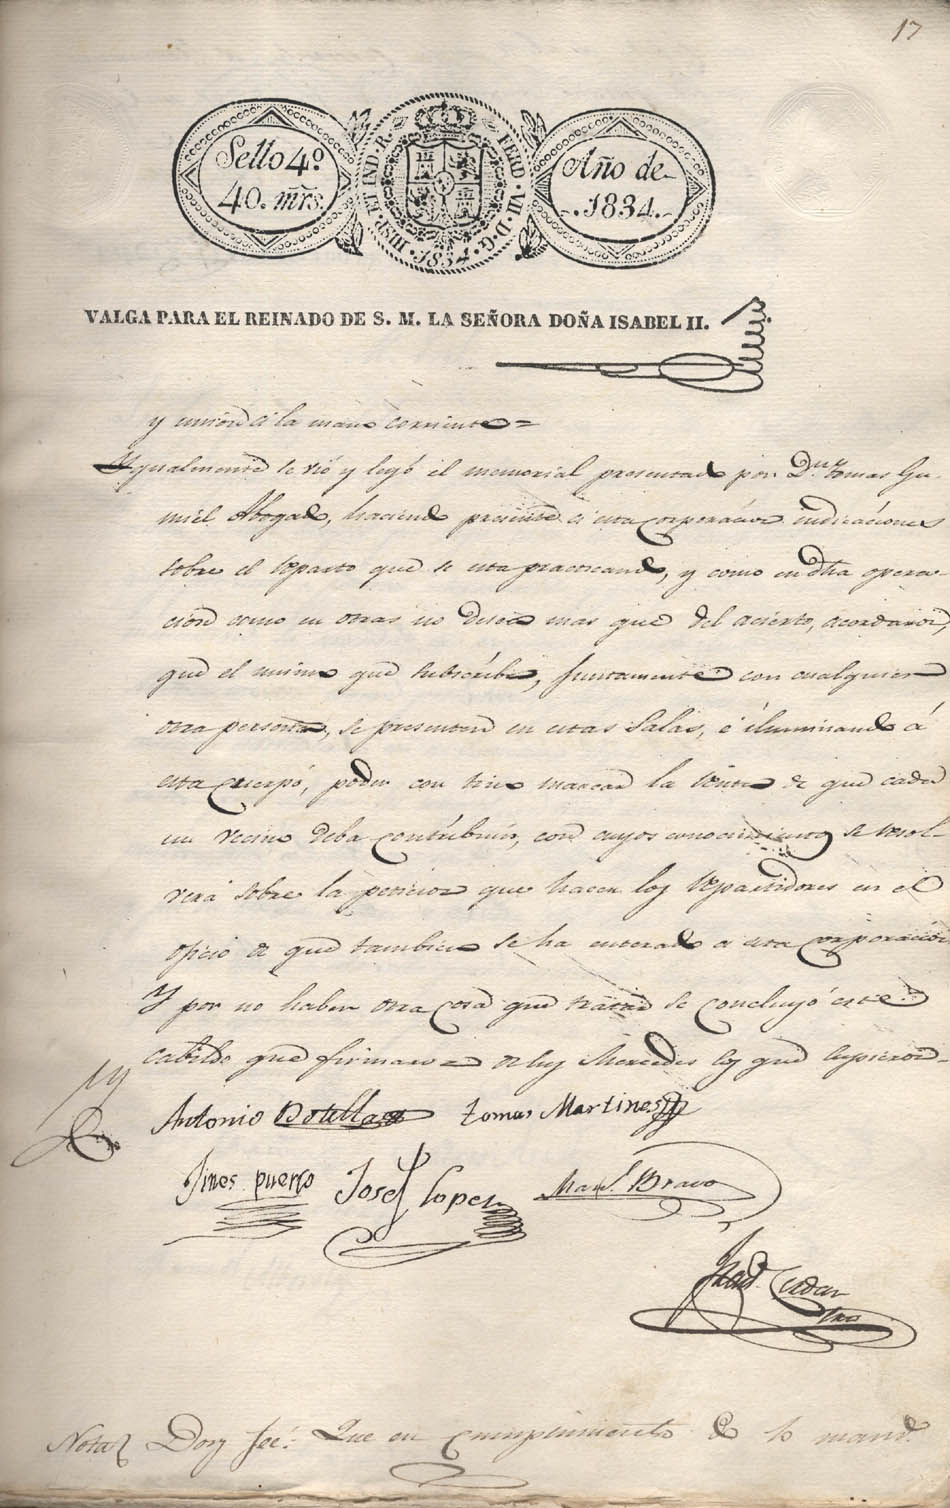 17
Sello 4.º
40. mrs.
HISP. ET IND. R. FERD. VII. D. G. 1834.
Año de
1834.
VALGA PARA EL REINADO DE S. M. LA SEÑORA DOÑA ISABEL II.
y union á la mano corriente =
Ygualmente se vió y leyó el memorial presentado por Dn. tomas Gu-
miel Abogado, haciendo presente á esta corporacion indicaciones
sobre el reparto que se esta practicando, y como en dha opera-
cion como en otras no desea mas que del acierto, acordaron,
que el mismo que subscribe, juntamente con cualquier
otra persona, se presenten en estas Salas, é iluminando á
esta cuerpo, poder con tino marcar la renta de que cada
un vecino deba contribuir, con cuyos conocimientos se resol-
verá sobre la peticion que hacen los repartidores en el
oficio de que tambien se ha enterado a esta corporacion
Y por no haber otra cosa que tratar se concluyó este
cabildo que firmaron = de luz Mercedes los que supieron =
Antonio Botella
tomas Martines
Jines puerto
Josef Lopez
Manl. Bravo
Nota Doy fee: Que en cumplimiento de lo mand.